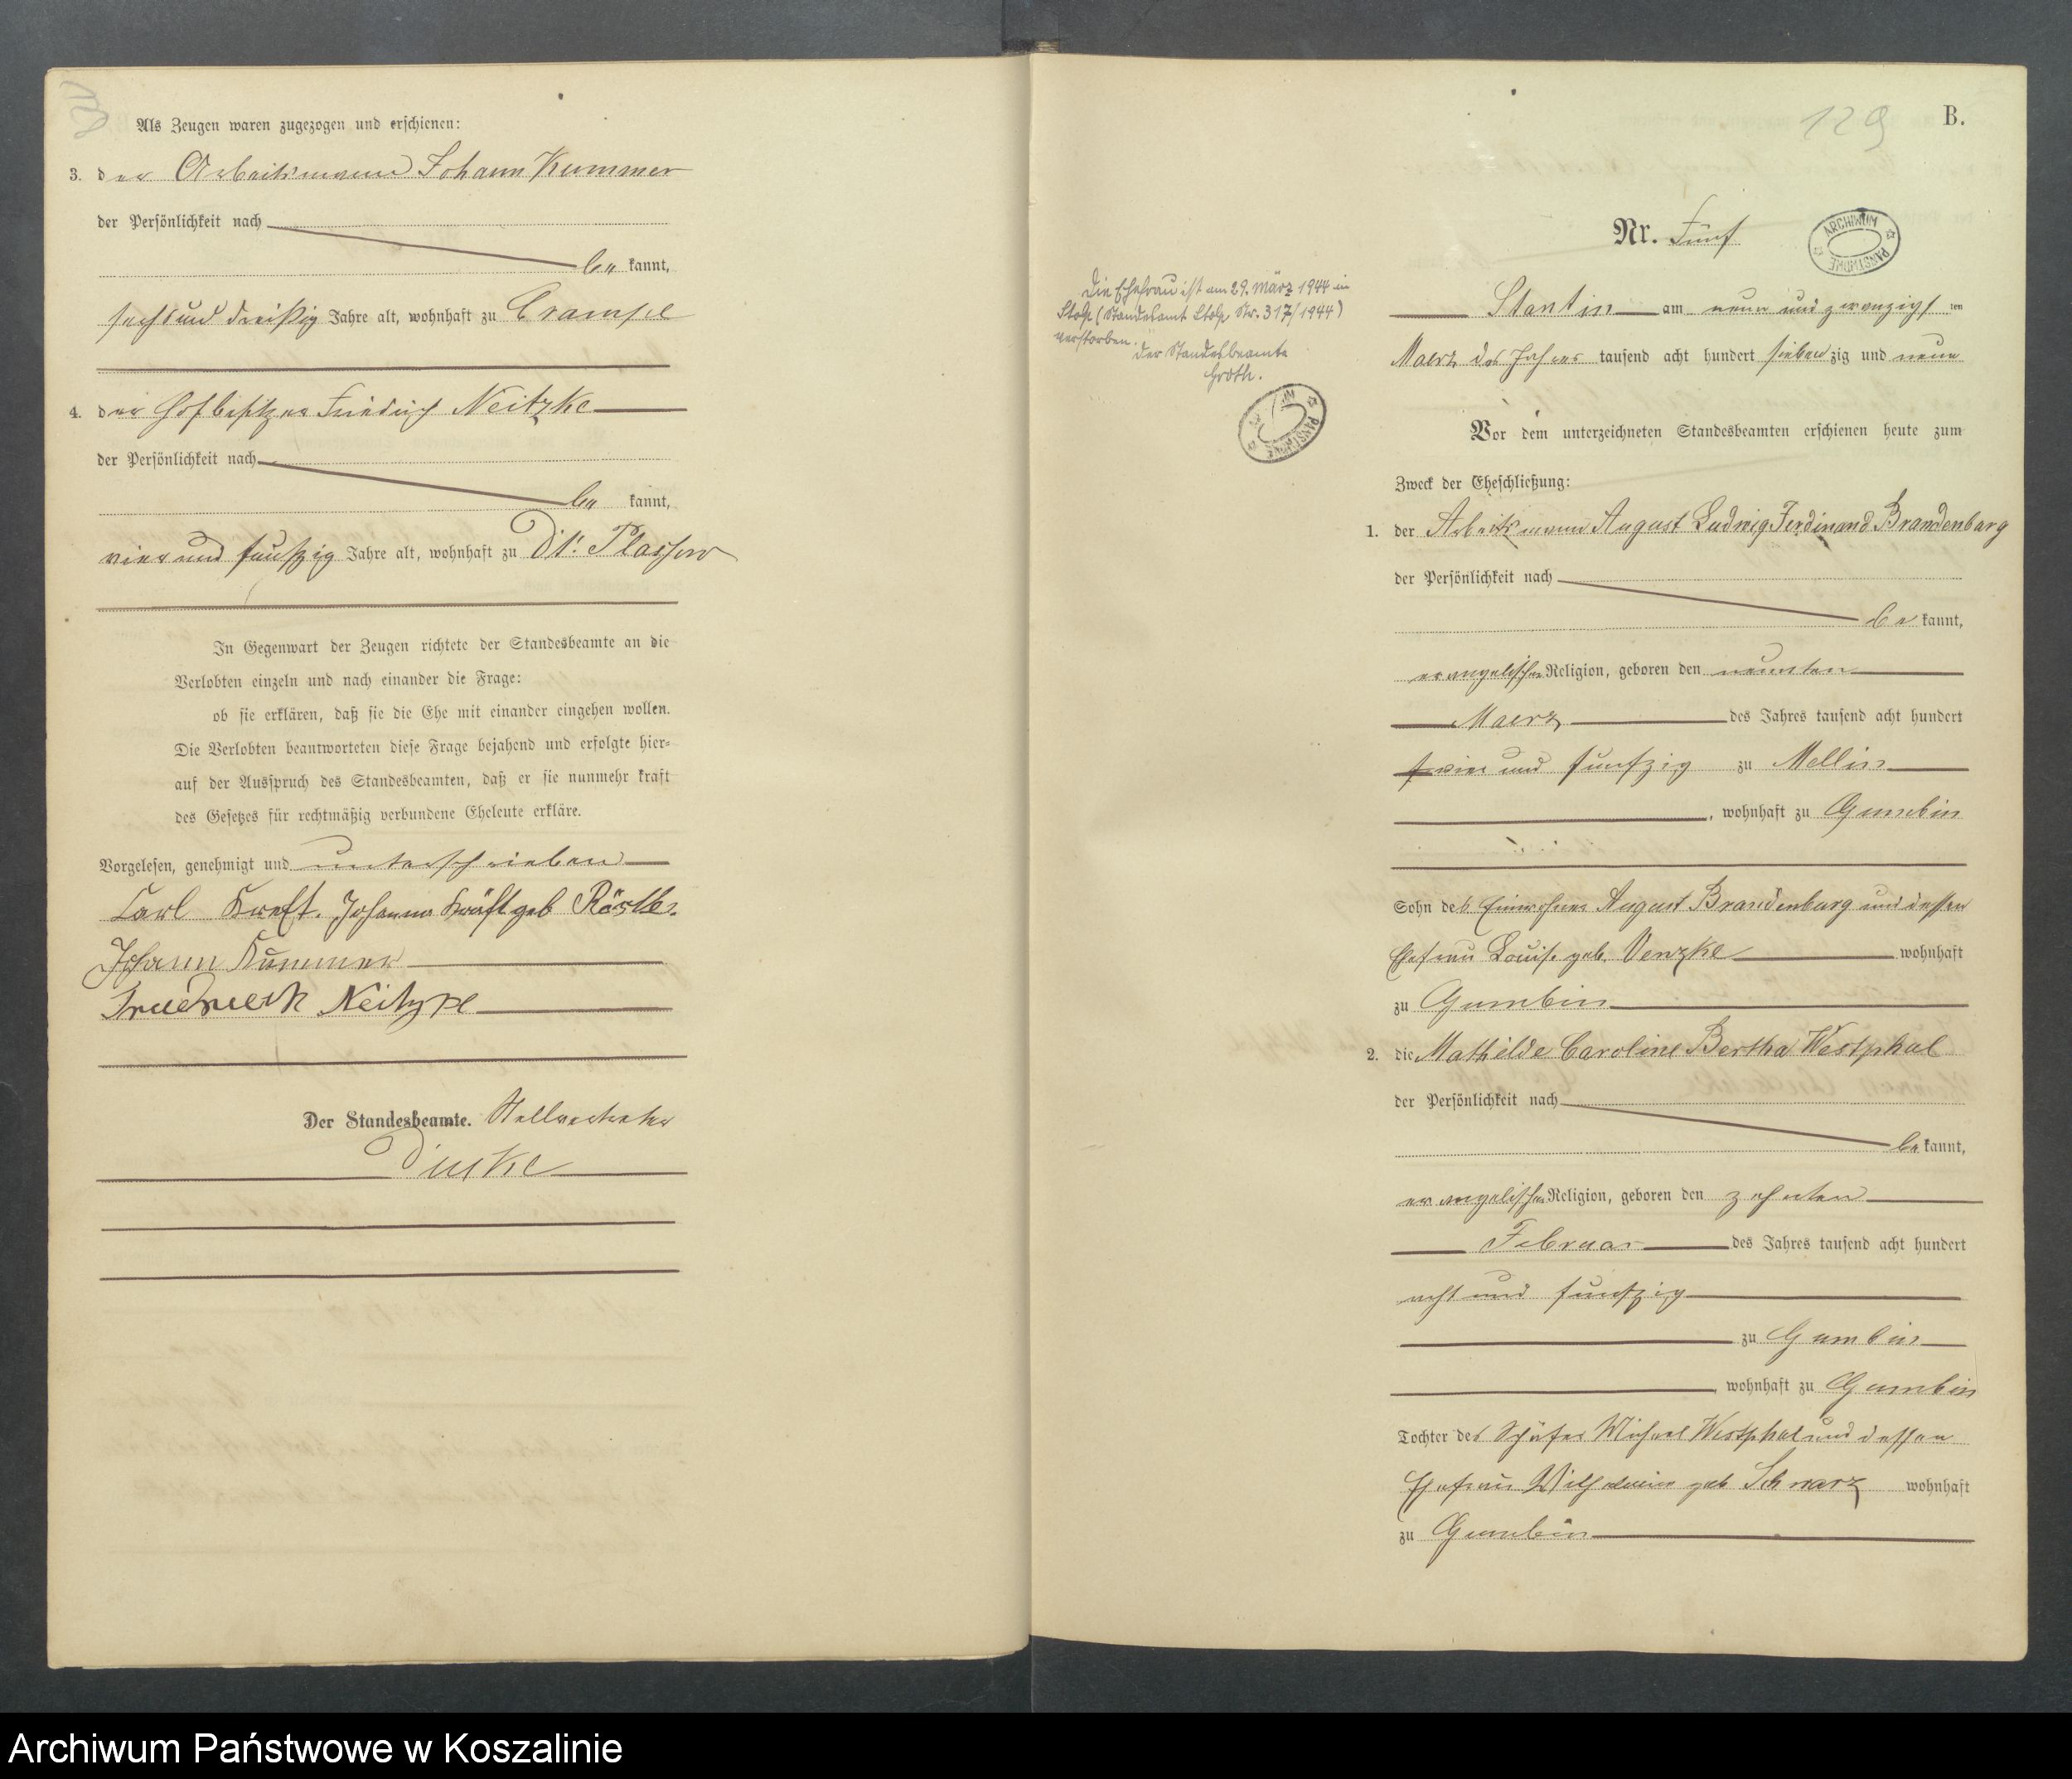 Als Zeugen waren zugezogen und erschienen:
3. der Arbeitsmann Johann Kummer
der Persönlichkeit nach
be kannt,
sechs und dreißig Jahre alt, wohnhaft zu Crampe
4. der Hofbesitzer Friedrich Neitzke
der Persönlichkeit nach
be kannt,
vier und funfzig Jahre alt, wohnhaft zu Dt. Plassow
In Gegenwart der Zeugen richtete der Standesbeamte an die
Verlobten einzeln und nach einander die Frage:
ob sie erklären, daß sie die Ehe mit einander eingehen wollen.
Die Verlobten beantworteten diese Frage bejahend und erfolgte hier-
auf der Ausspruch des Standesbeamten, daß er sie nunmehr kraft
des Gesetzes für rechtmäßig verbundene Eheleute erkläre.
Vorgelesen, genehmigt und unterschrieben
Carl Kreft. Johanna Kräft geb
Johann Kummer
Neitzke
Der Standesbeamte. Stellvertreter
129 B.
Nr. Fünf
ARCHIWUM PAŃSTWOWE
Die Ehefrau ist am 29. März 1944 in
Stolp (Standesamt Stolp Nr. 317/1944)
verstorben.
Der Standesbeamte
Groth.
Stantin am neun und zwanzigsten
Maerz des Jahres tausend acht hundert siebenzig und neun
Vor dem unterzeichneten Standesbeamten erschienen heute zum
Zweck der Eheschließung:
1. der Arbeitsmann August Ludwig Ferdinand Brandenburg
der Persönlichkeit nach
be kannt,
evangelischer Religion, geboren den neunten
Maerz des Jahres tausend acht hundert
vier und funfzig zu Mellin
, wohnhaft zu Gumbin
Sohn des Einwohner August Brandenburg und dessen
Ehefrau Louise geb. Venzke wohnhaft
zu Gumbin
2. die Mathilde Caroline Bertha Westphal
der Persönlichkeit nach
be kannt,
evangelischer Religion, geboren den zehnten
Februar des Jahres tausend acht hundert
acht und funfzig
zu Gumbin
, wohnhaft zu Gumbin
Tochter des Schäfer Michael Westphal und dessen
Ehefrau Wilhelmine geb Schwarz wohnhaft
zu Gumbin
Archiwum Państwowe w Koszalinie